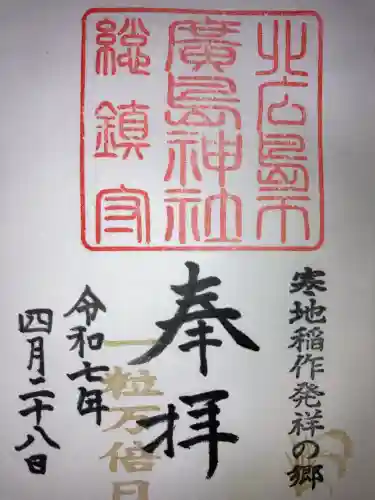 北広島市
廣島神社
総鎮守
寒地稲作発祥の郷
奉拝
一粒万倍日
令和七年
四月二十八日